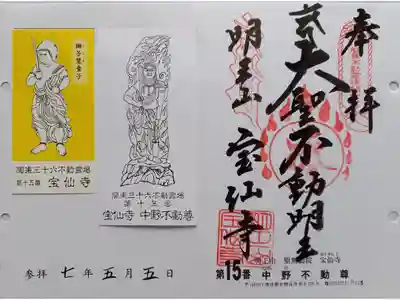 奉拝
大聖不動明王
明王山
宝仙寺
第15番 中野不動尊
獅子慧童子
関東三十六不動霊場
第十五番 宝仙寺
関東三十六不動霊場
第十五番
宝仙寺 中野不動尊
参拝 七年五月五日